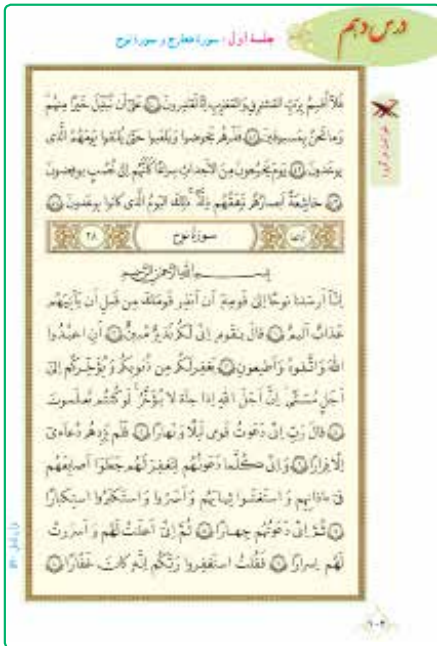 درس دهم
جلسهٔ اول: سورهٔ معارج و سورهٔ نوح
فَلا اُقسِمُ بِرَبِّ المَشارِقِ وَ المَغارِبِ اِنّا لَقادِرونَ ۴۰ عَلىٰ اَن نُبَدِّلَ خَيرًا مِنهُم
وَ ما نَحنُ بِمَسبوقينَ ۴۱ فَذَرهُم يَخوضوا وَ يَلعَبوا حَتّىٰ يُلاقوا يَومَهُمُ الَّذى
يوعَدونَ ۴۲ يَومَ يَخرُجونَ مِنَ الاَجداثِ سِراعًا كَاَنَّهُم اِلىٰ نُصُبٍ يوفِضونَ
۴۳ خاشِعَةً اَبصارُهُم تَرهَقُهُم ذِلَّةٌ ذٰلِكَ اليَومُ الَّذى كانوا يوعَدونَ ۴۴
سورة نوح ۲۸
بسم الله الرحمن الرحيم
اِنّا اَرسَلنا نوحًا اِلىٰ قَومِهٖ اَن اَنذِر قَومَكَ مِن قَبلِ اَن يَأتِيَهُم
عَذابٌ اَليمٌ ۱ قالَ يا قَومِ اِنّى لَكُم نَذيرٌ مُبينٌ ۲ اَنِ اعبُدُوا
اللهَ وَ اتَّقوهُ وَ اَطيعونِ ۳ يَغفِر لَكُم مِن ذُنوبِكُم وَ يُؤَخِّركُم اِلىٰ
اَجَلٍ مُسَمًّى اِنَّ اَجَلَ اللهِ اِذا جاءَ لا يُؤَخَّرُ لَو كُنتُم تَعلَمونَ
۴ قالَ رَبِّ اِنّى دَعَوتُ قَومى لَيلًا وَ نَهارًا ۵ فَلَم يَزِدهُم دُعاءى
اِلّا فِرارًا ۶ وَ اِنّى كُلَّما دَعَوتُهُم لِتَغفِرَ لَهُم جَعَلوا اَصابِعَهُم
فى ءاذانِهِم وَ استَغشَوا ثِيابَهُم وَ اَصَرّوا وَ استَكبَرُوا استِكبارًا
۷ ثُمَّ اِنّى دَعَوتُهُم جِهارًا ۸ ثُمَّ اِنّى اَعلَنتُ لَهُم وَ اَسرَرتُ
لَهُم اِسرارًا ۹ فَقُلتُ استَغفِروا رَبَّكُم اِنَّهٗ كانَ غَفّارًا ۱۰